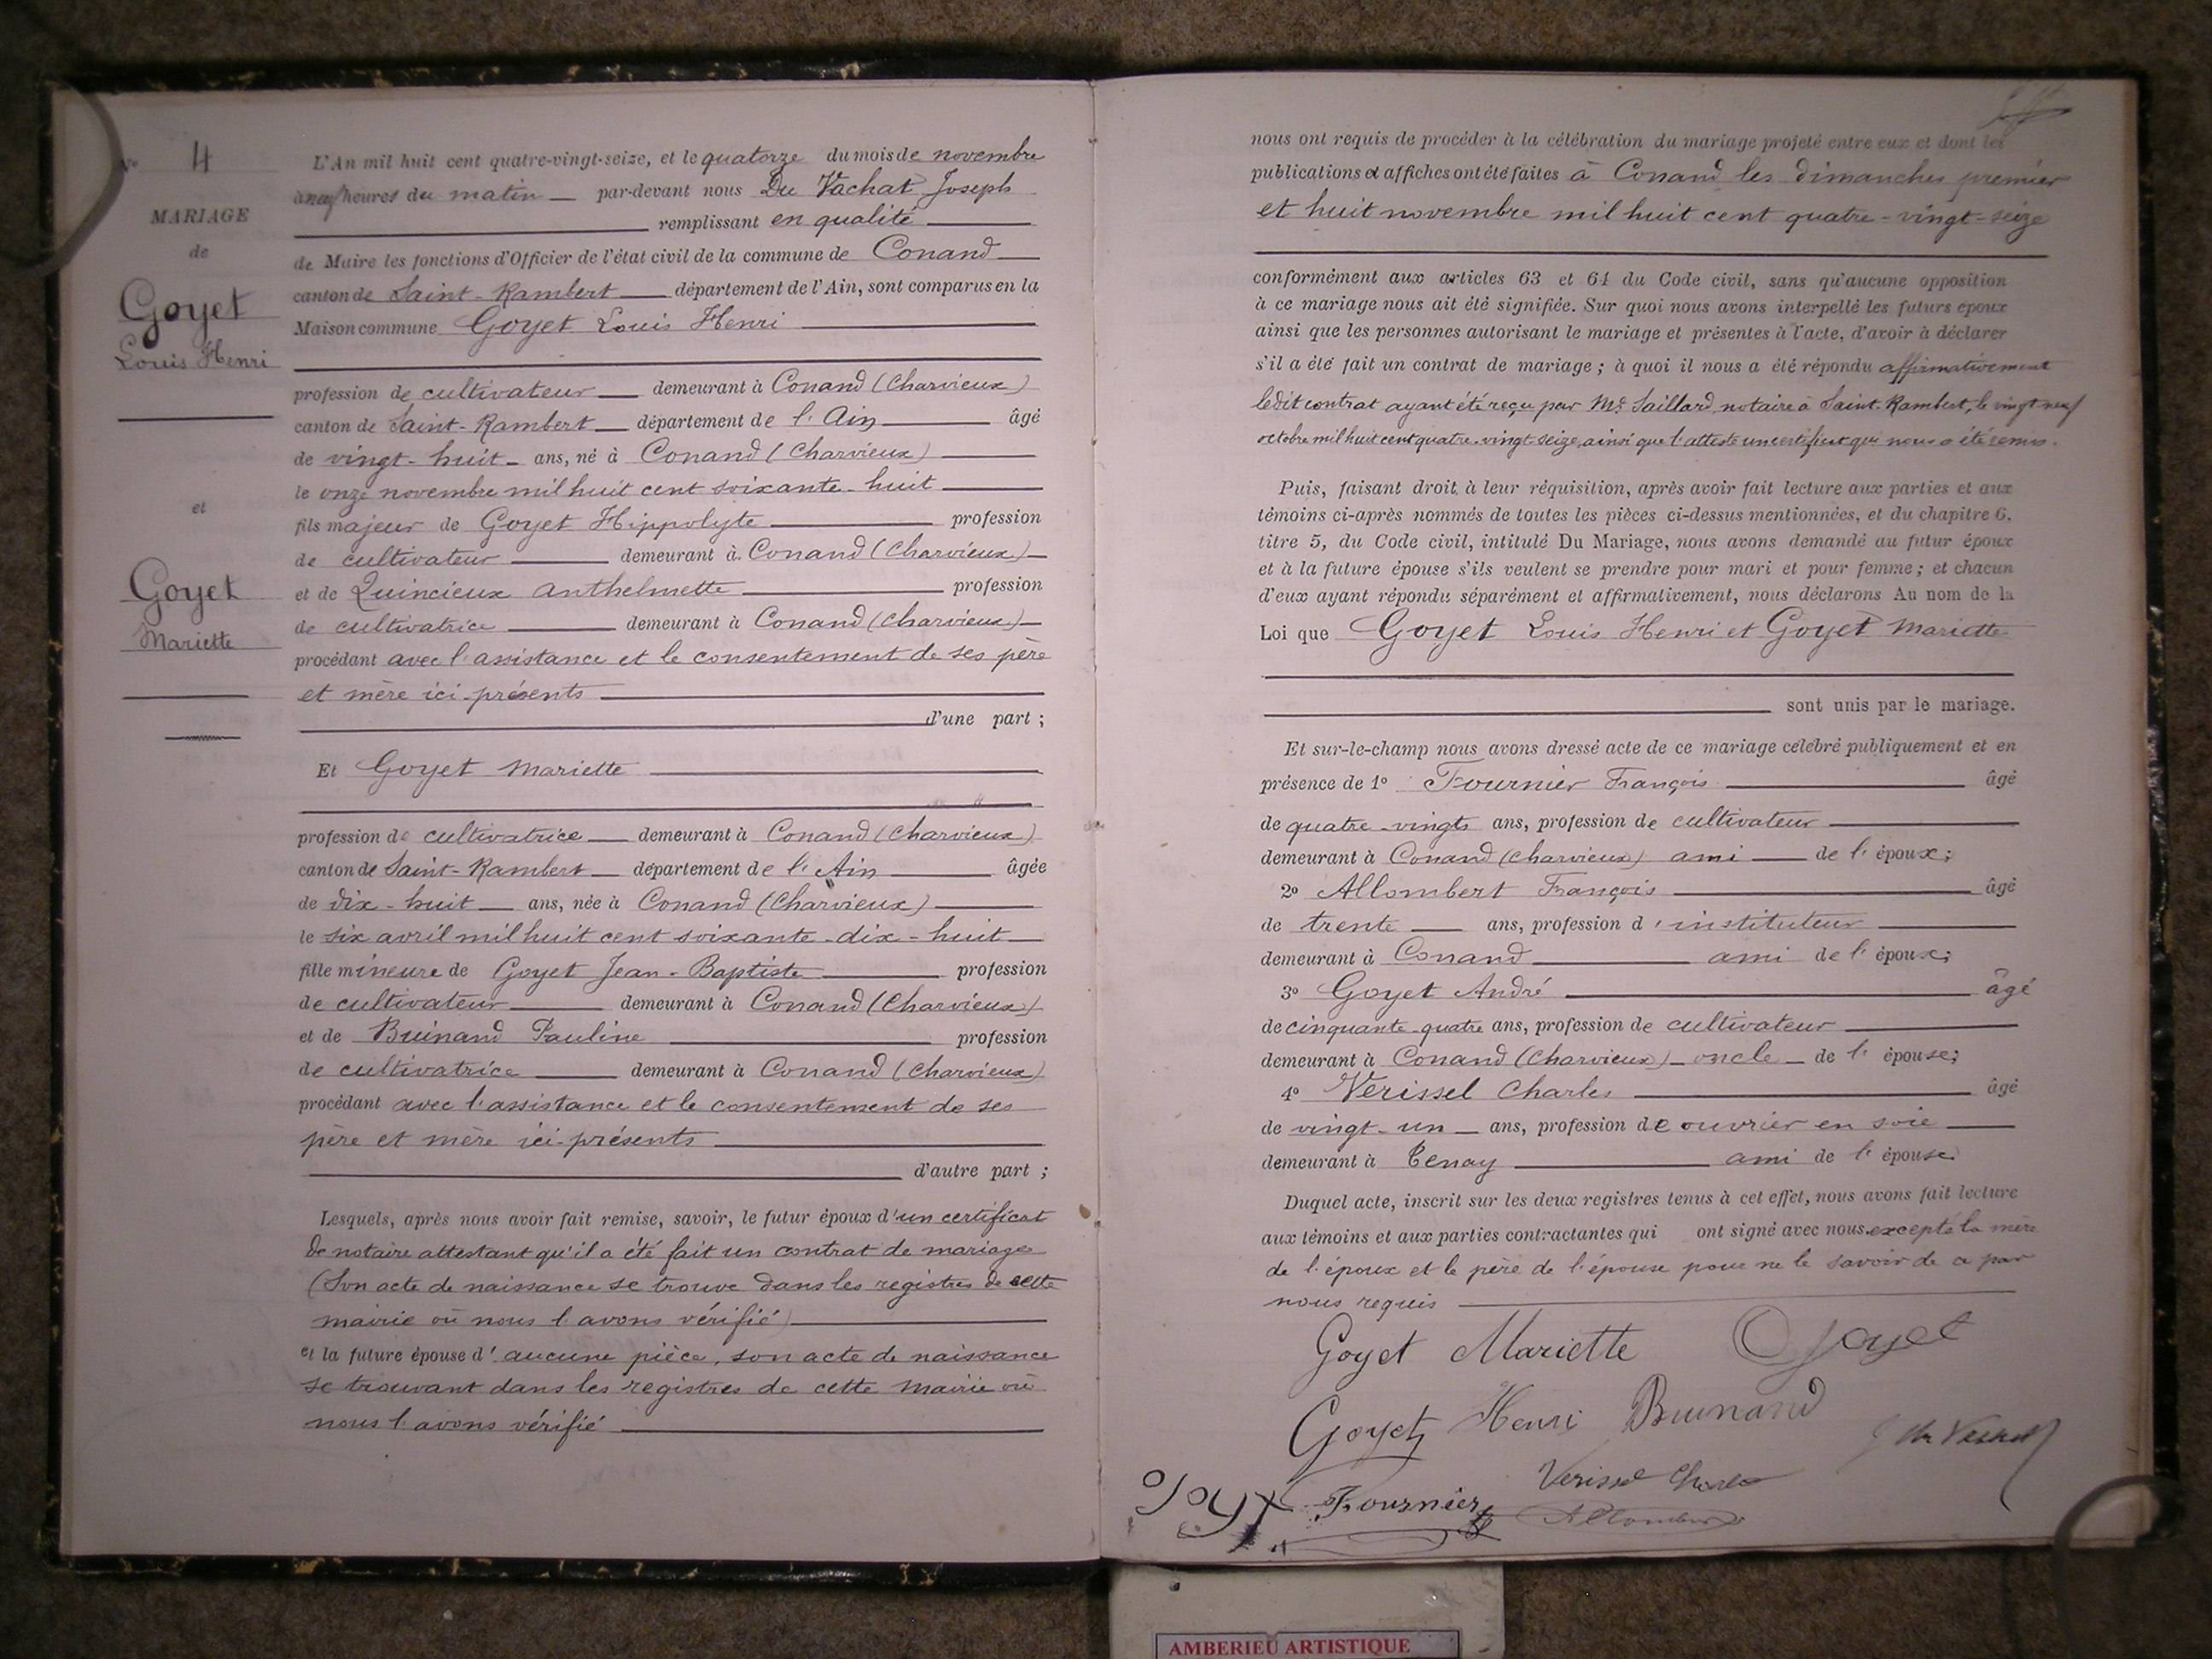 No 4
MARIAGE
de
Goyet
Louis Henri
et
Goyet
Mariette
L'An mil huit cent quatre-vingt-seize, et le quatorze du mois de novembre
à neuf heures du matin par-devant nous Du Vachat Joseph
remplissant en qualité
de Maire les fonctions d'Officier de l'état civil de la commune de Conand
canton de Saint-Rambert département de l'Ain, sont comparus en la
Maison commune Goyet Louis Henri
profession de cultivateur demeurant à Conand (Charvieux)
canton de Saint-Rambert département de l'Ain âgé
de vingt-huit ans, né à Conand (Charvieux)
le onze novembre mil huit cent soixante-huit
fils majeur de Goyet Hippolyte profession
de cultivateur demeurant à Conand (Charvieux)
et de Quincieux Anthelmette profession
de cultivatrice demeurant à Conand (Charvieux)
procédant avec l'assistance et le consentement de ses père
et mère ici-présents
d'une part ;
Et Goyet Mariette
profession de cultivatrice demeurant à Conand (Charvieux)
canton de Saint-Rambert département de l'Ain âgée
de dix-huit ans, née à Conand (Charvieux)
le six avril mil huit cent soixante-dix-huit
fille mineure de Goyet Jean-Baptiste profession
de cultivateur demeurant à Conand (Charvieux)
et de Buinand Pauline profession
de cultivatrice demeurant à Conand (Charvieux)
procédant avec l'assistance et le consentement de ses
père et mère ici-présents
d'autre part ;
Lesquels, après nous avoir fait remise, savoir, le futur époux d'un certificat
de notaire attestant qu'il a été fait un contrat de mariage
(Son acte de naissance se trouve dans les registres de cette
mairie où nous l'avons vérifié)
et la future épouse d'aucune pièce, son acte de naissance
se trouvant dans les registres de cette mairie où
nous l'avons vérifié
nous ont requis de procéder à la célébration du mariage projeté entre eux et dont les
publications et affiches ont été faites à Conand les dimanches premier
et huit novembre mil huit cent quatre-vingt-seize
conformément aux articles 63 et 64 du Code civil, sans qu'aucune opposition
à ce mariage nous ait été signifiée. Sur quoi nous avons interpellé les futurs époux
ainsi que les personnes autorisant le mariage et présentes à l'acte, d'avoir à déclarer
s'il a été fait un contrat de mariage ; à quoi il nous a été répondu affirmativement
ledit contrat ayant été reçu par Me Saillard, notaire à Saint-Rambert, le vingt neuf
octobre mil huit cent quatre-vingt-seize, ainsi que l'atteste un certificat qui nous a été remis.
Puis, faisant droit à leur réquisition, après avoir fait lecture aux parties et aux
témoins ci-après nommés de toutes les pièces ci-dessus mentionnées, et du chapitre 6,
titre 5, du Code civil, intitulé Du Mariage, nous avons demandé au futur époux
et à la future épouse s'ils veulent se prendre pour mari et pour femme ; et chacun
d'eux ayant répondu séparément et affirmativement, nous déclarons Au nom de la
Loi que Goyet Louis Henri et Goyet Mariette
sont unis par le mariage.
Et sur-le-champ nous avons dressé acte de ce mariage célébré publiquement et en
présence de 1º Fournier François âgé
de quatre-vingts ans, profession de cultivateur
demeurant à Conand (Charvieux) ami de l'époux ;
2º Allombert François âgé
de trente ans, profession d'instituteur
demeurant à Conand ami de l'époux ;
3º Goyet André âgé
de cinquante-quatre ans, profession de cultivateur
demeurant à Conand (Charvieux) oncle de l'épouse ;
4º Verissel Charles âgé
de vingt-un ans, profession de ouvrier en soie
demeurant à Tenay ami de l'épouse
Duquel acte, inscrit sur les deux registres tenus à cet effet, nous avons fait lecture
aux témoins et aux parties contractantes qui ont signé avec nous, excepté la mère
de l'époux et le père de l'épouse pour ne le savoir de ce par
nous requis
Goyet Mariette Goyet
Goyet Henri Buinand
Verissel Charles
Fournier Allombert
AMBERIEU ARTISTIQUE